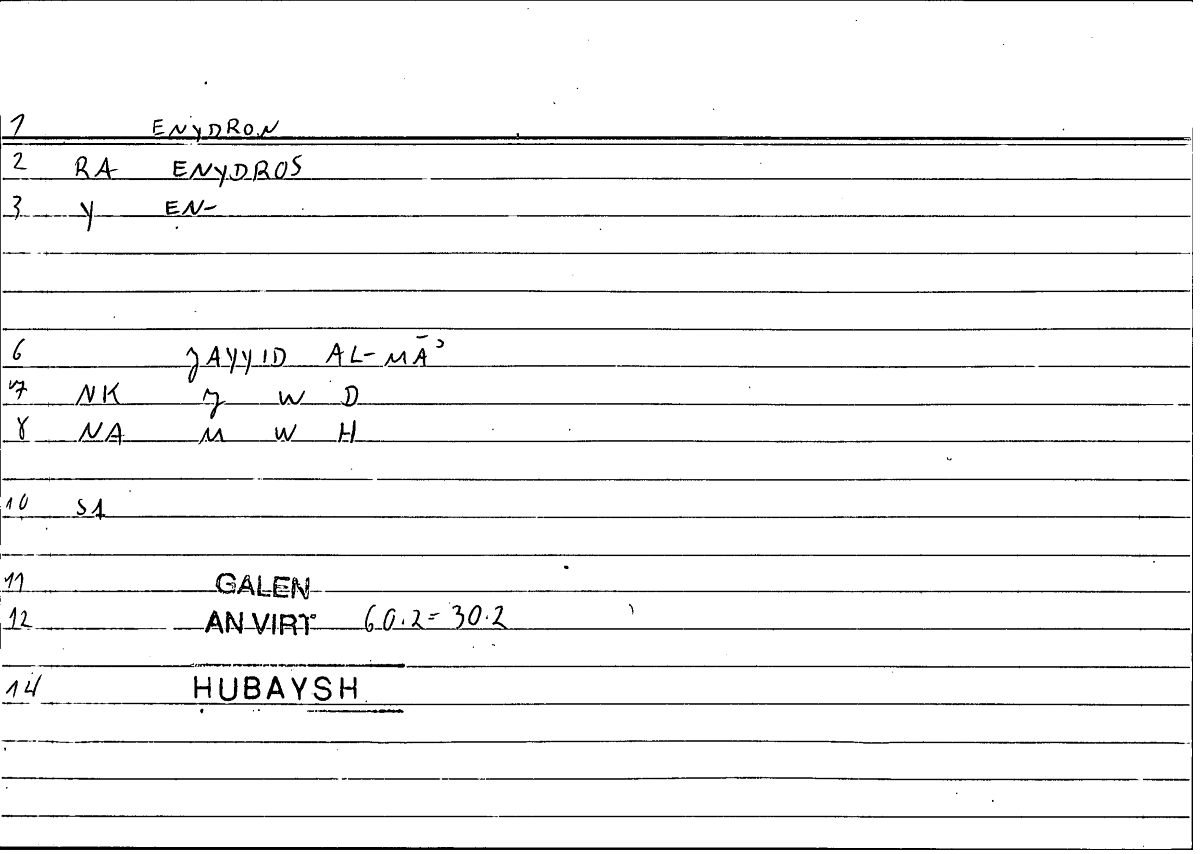 1 ENYDRON
2 RA ENYDROS
3 Y EN-
6 ʒAYYID AL-MĀʾ
7 NK ʒ W D
8 NA M W H
10 S1
11 GALEN
12 AN VIRT 60.2=30.2
14 HUBAYSH